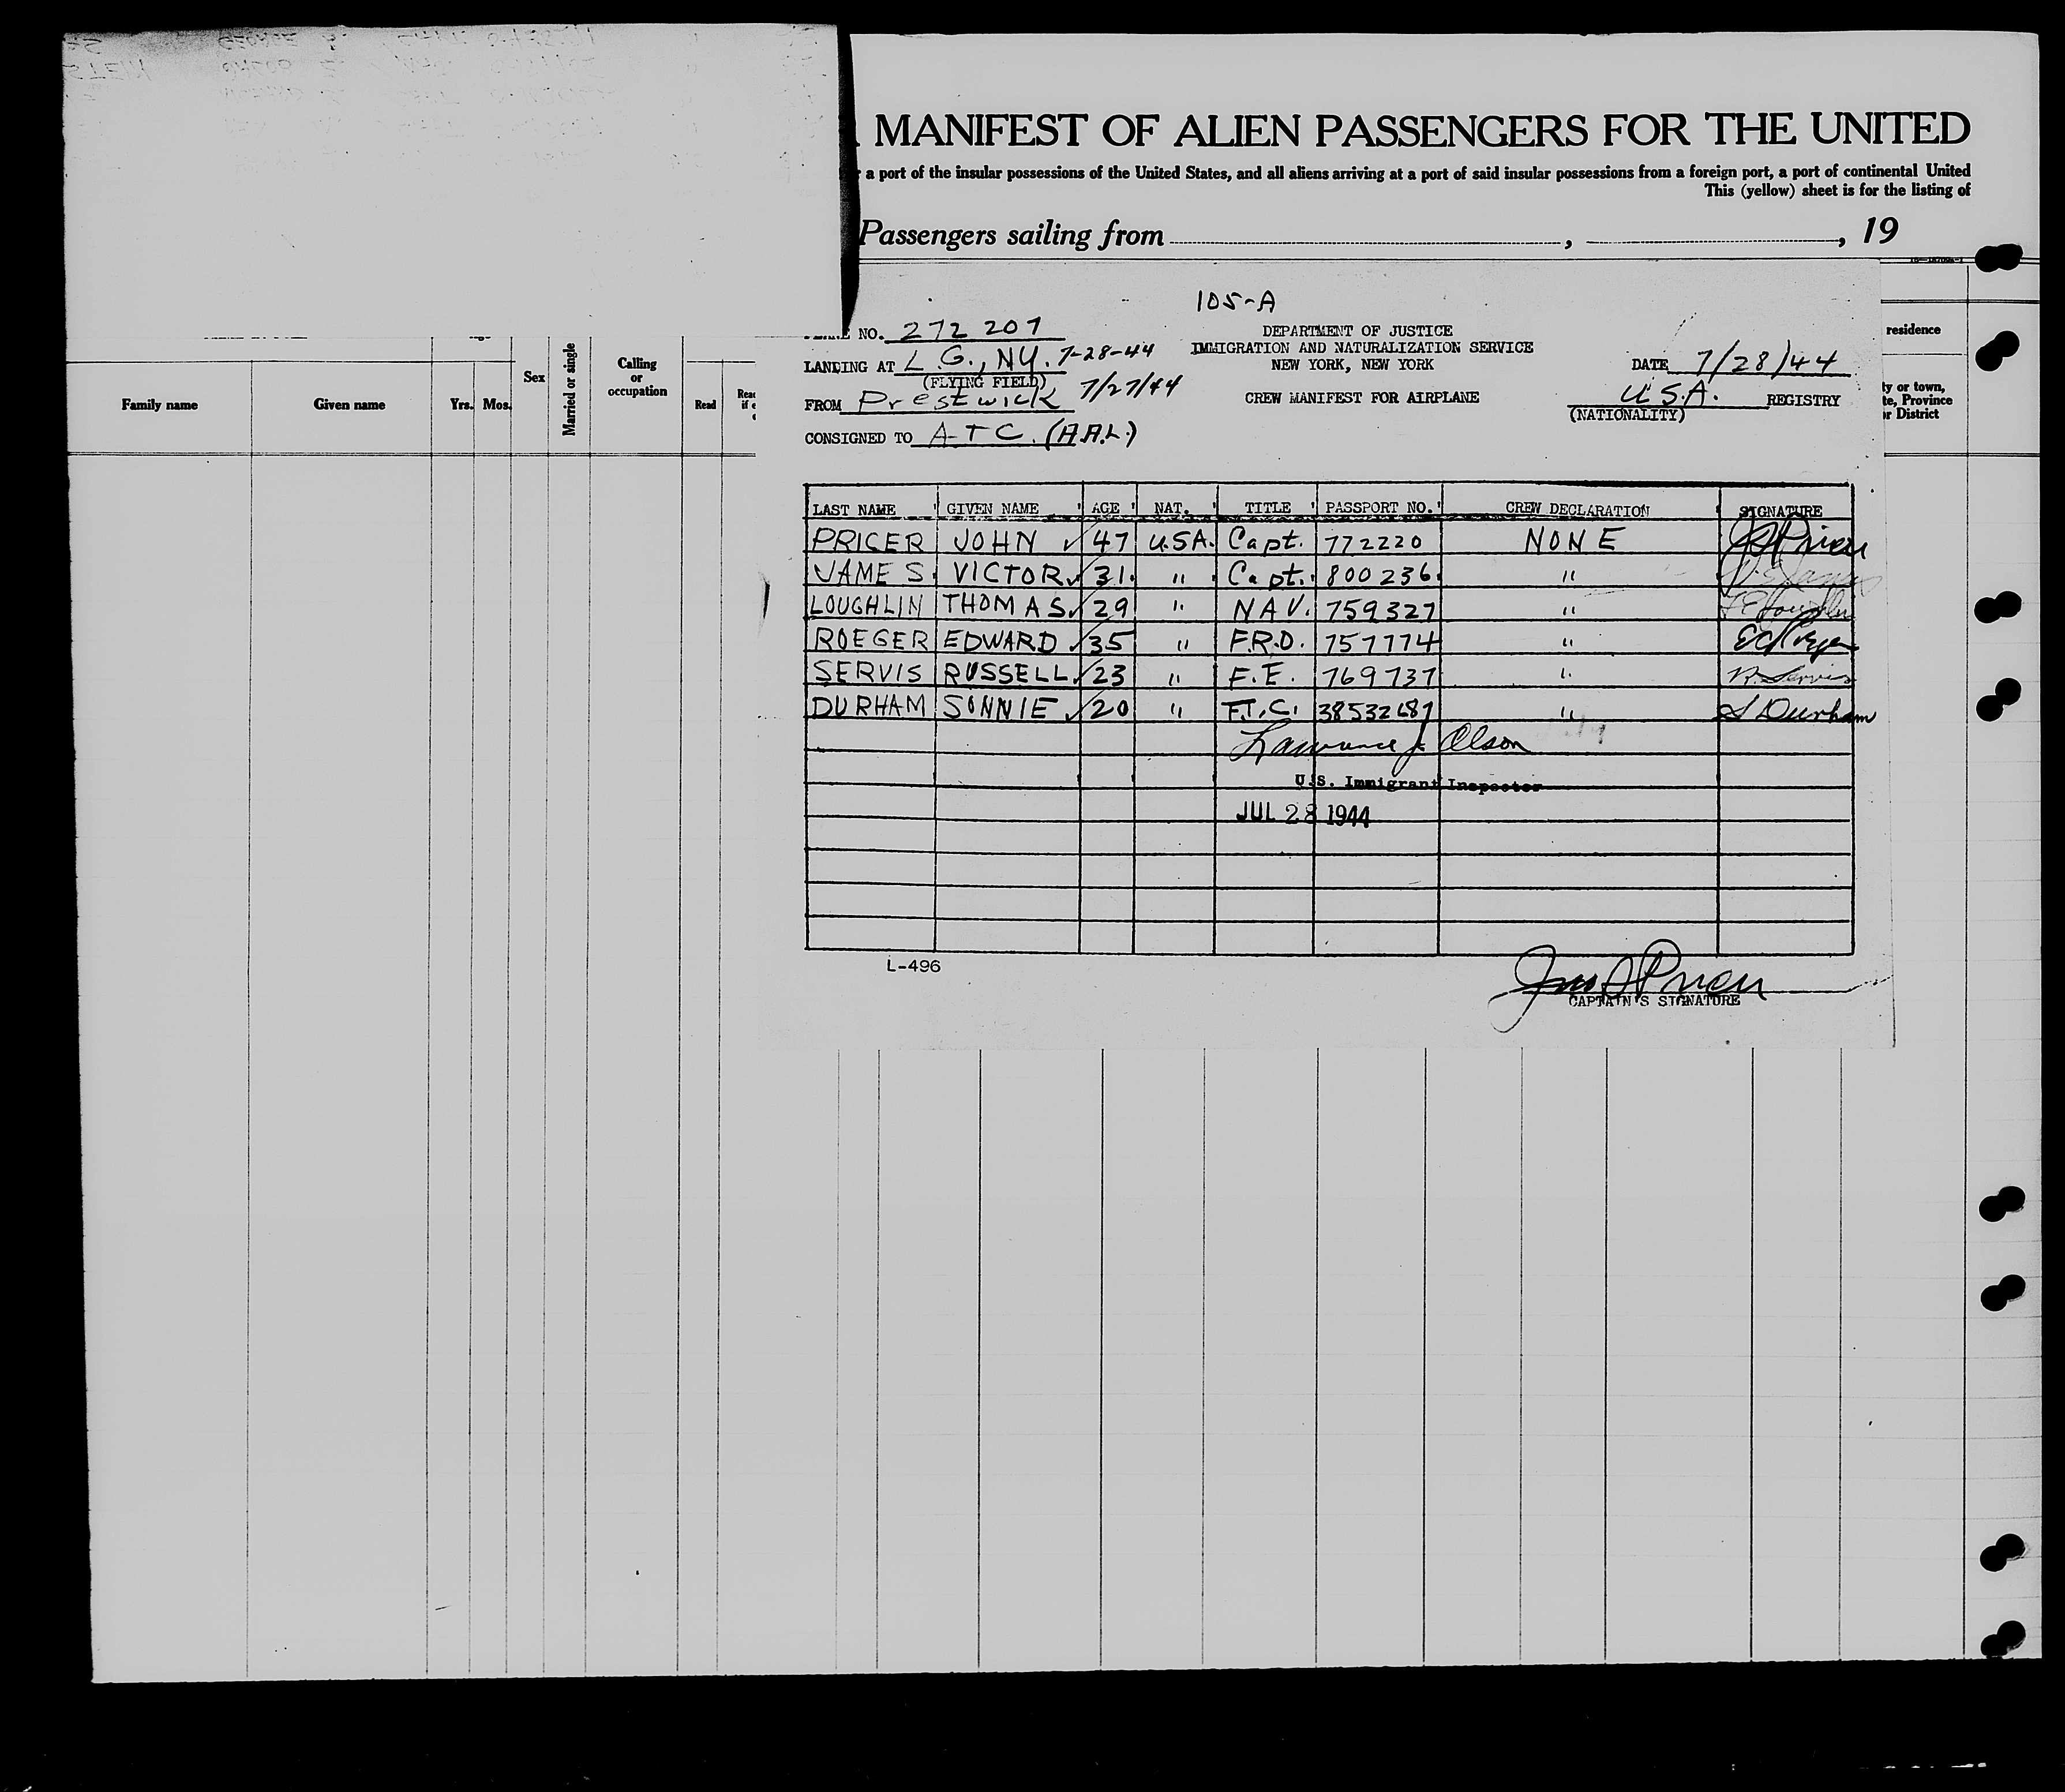 MANIFEST OF ALIEN PASSENGERS FOR THE UNITED
a port of the insular possessions of the United States, and all aliens arriving at a port of said insular possessions from a foreign port, a port of continental United
This (yellow) sheet is for the listing of
Passengers sailing from , , 19
105-A
NO. 272207
DEPARTMENT OF JUSTICE
LANDING AT L. G., NY. 7-28-44
IMMIGRATION AND NATURALIZATION SERVICE
(FLYING FIELD)
NEW YORK, NEW YORK
DATE 7/28/44
FROM Prestwick 7/27/44
CREW MANIFEST FOR AIRPLANE
U.S.A. REGISTRY
(NATIONALITY)
CONSIGNED TO A T C. (A.A.L.)
residence
Family name Given name Yrs. Mos. Sex Married or single Calling or occupation Read
ty or town,
te, Province
or District
LAST NAME GIVEN NAME AGE NAT. TITLE PASSPORT NO. CREW DECLARATION SIGNATURE
PRICER JOHN ✓ 47 U.S.A. Capt. 772220 NONE
JAMES VICTOR ✓ 31 " Capt. 800236 "
LOUGHLIN THOMAS ✓ 29 " NAV. 759327 "
ROEGER EDWARD ✓ 35 " F.R.O. 757774 "
SERVIS RUSSELL ✓ 23 " F.E. 769737 " R. Servis
DURHAM SONNIE ✓ 20 " F.T.C. 38532687 " S Durham
Lawrence J. Olson
U.S. Immigrant Inspector
JUL 28 1944
L-496
CAPTAIN'S SIGNATURE